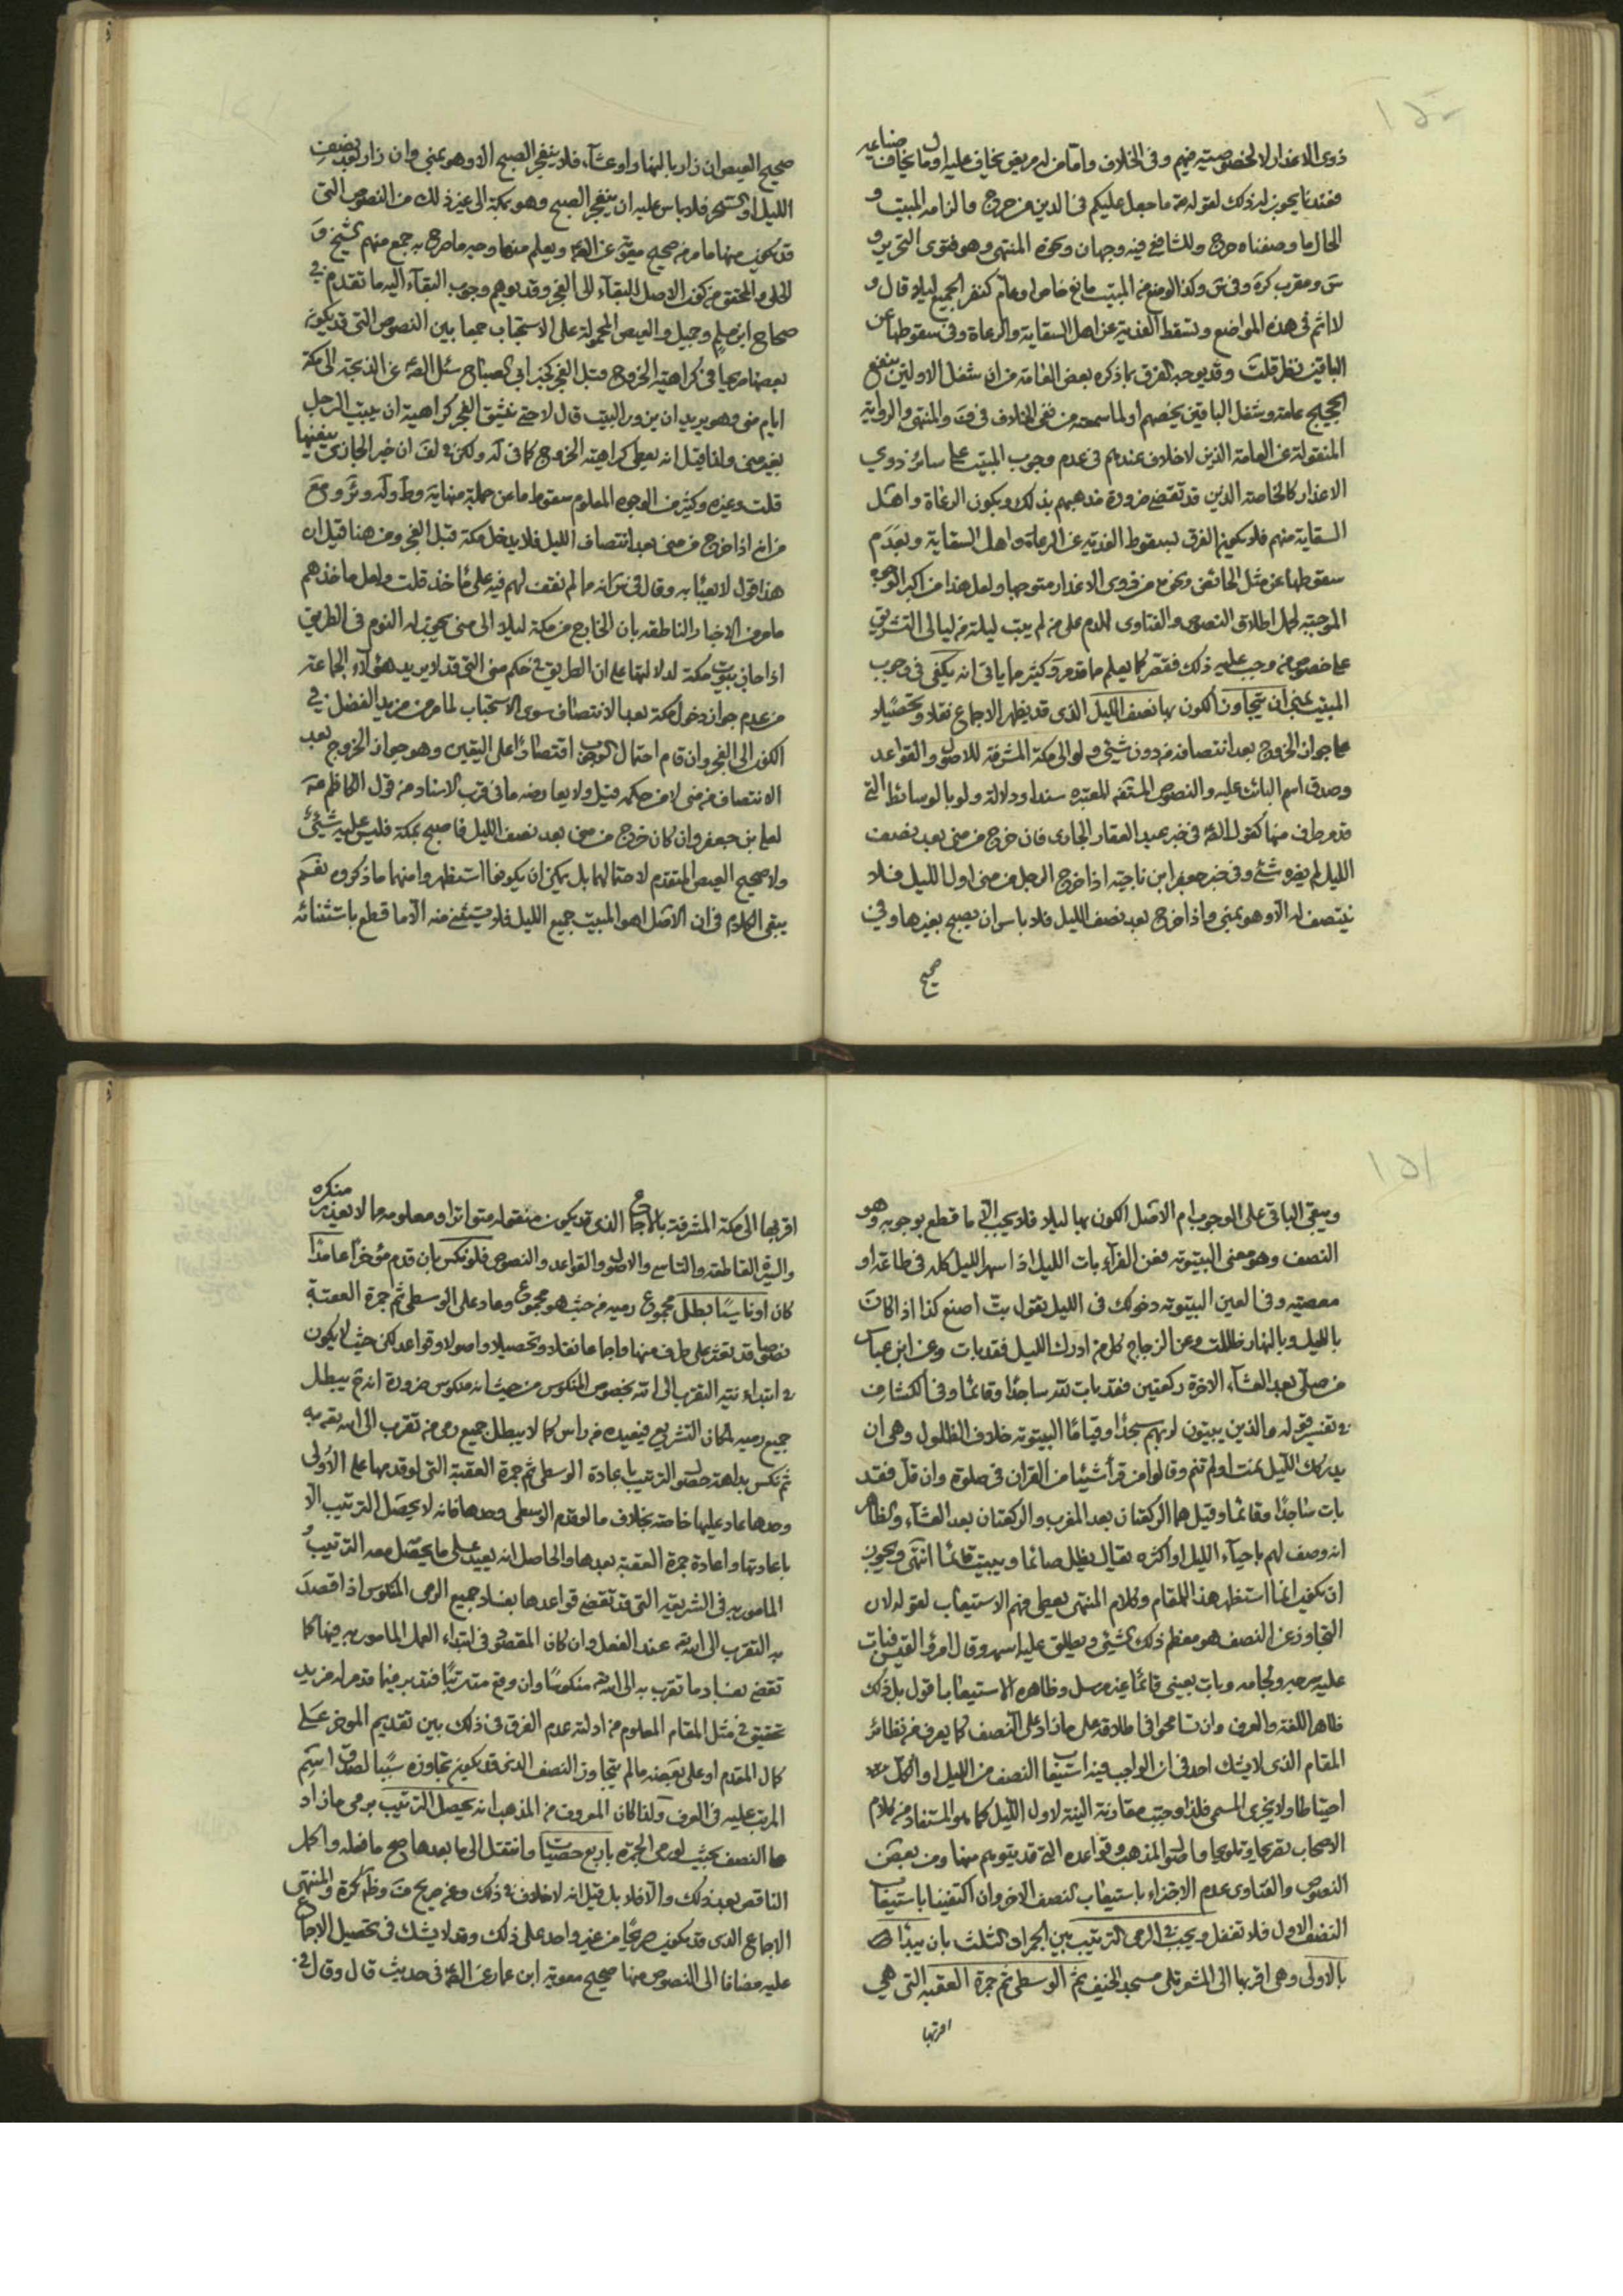 ١٥٠
ذوى الاعذار لا لخصوصيته فيهم وفى الخلاف وامّا من له مريض يخاف عليه او مال يخاف ضياعه
فعندنا يجوز له ذلك لقوله تع ما جعل عليكم فى الدين من حرج والزامه المبيت و
الحال ما وصفناه حرج وللشافعي فيه وجهان ونحوه المنتهى وهو فتوى التحرير و
س ومقرب كره وفى وكذا لو منع من المبيت مانع خاص او عام كنفر الجميع ليلا قال و
لا اثم فى هذه المواضع وتسقط الفدية عن اهل السقاية والرعاة وفى سقوطها عن
الباقين نظر قلت وقد يوجه الفرق بما ذكره بعض العامة من ان شغل الاولين ينفع
الحجيج عامة وشغل الباقين يخصهم او لما سمعته من نفى الخلاف فى ف والمنتهى والرواية
المنقولة عن العامة الذين لا خلاف عندهم فى عدم وجوب المبيت على سائر ذوي
الاعذار كالخاصة الذين قد تقتضي ضرورة مذهبهم بذلك ويكون الرعاة واهل
السقاية منهم فلا يكون الفرق بسقوط الفدية عن الرعاة واهل السقاية وبعدم
سقوطها عن مثل الخائف ونحوه من ذوى الاعذار متوجها ولعل هذا من اكبر الوجوه
الموجبة لحمل اطلاق النصوص والفتاوى للدم على من لم يبت ليلة من ليالى التشريق
على خصوص من وجب عليه ذلك فتصر كما يعلم ما تقدم وكثير ما ياتى انه يكفى فى وجوب
المبيت بمنى ان يتجاوز الكون بها نصف الليل الذى قد يظهر الاجماع نقلا وتحصيلا
على جواز الخروج بعد انتصافه من دون شيء ولو الى مكة المشرفة للاصول والقواعد
وصدق اسم البائت عليه والنصوص المستفه المعتبره سندا ودلالة ولو بالوسائط التي
قد مر طرف منها كقول الص فى خبر عبد الغفار الجازى فان خرج من منى بعد نصف
الليل لم يضره شئ وفى خبر جعفر ابن ناجية اذا خرج الرجل من منى اول الليل فلا
ينتصف له الا وهو بمنى واذا خرج بعد نصف الليل فلا باس ان يصبح بغيرها وفى
صحيح
صحيح العيص ان زار بالنهار او عشآء فلا ينفجر الصبح الا وهو بمنى وان زار بعد نصف
الليل او السحر فلا باس عليه ان ينفجر الصبح وهو بمكة الى غير ذلك من النصوص التى
قد يكون منها ما مر من صحيح معوية عن الص ويعلم منها وجه ما صرح به جمع منهم الشيخ و
الحلى والمحقق من كون الاصل البقآء الى الفجر وقد يوهم وجوب البقآء اليه ما تقدم في
صحاح ابن مسلم وجميل والعيص المحمولة على الاستحباب جمعا بين النصوص التى قد يكون
بعضها صريحا فى كراهية الخروج قبل الفجر كخبر ابى الصباح سئل الص عن الدلجة الى مكة
ايام منى وهو يريد ان يزور البيت قال لا حتى ينشق الفجر كراهية ان يبيت الرجل
بغير منى ولذا قيل انه يعطى كراهية الخروج كما فى له ولكن لف ان خبر الجازى ينفيها
قلت وغيره وكثير من الوجوه المعلوم سقوط ما عن جملة منها ية وط وله وئر ومع
من انه اذا خرج من منى بعد انتصاف الليل فلا يدخل مكة قبل الفجر ومن هنا قيل ان
هذا قول لا يعبأ به وقال فى س انه ما لم نقف لهم فيه على مأخذ قلت ولعل ماخذهم
ما مر من الاخبار الناطقه بان الخارج من مكة ليلا الى منى يجوز له النوم فى الطريق
اذا جاز بيوت مكة لدلالتها على ان الطريق في حكم منى التى قد لا يريد هؤلاء الجماعة
من عدم جواز دخول مكة بعد الانتصاف سوى الاستحباب لما مر من مزيد الفضل في
الكون الى الفجر وان قام احتمال الوجوب اقتصارا على اليقين وهو جواز الخروج بعد
الانتصاف من منى لا من حكمه قيل ولا يعارضه ما فى قرب الاسناد من قول الكاظم عه
لعلى بن جعفر وان كان خرج من منى بعد نصف الليل فاصبح بمكة فليس عليه شئ
ولا صحيح العيص المتقدم لاحتمالها بل يمكن ان يكونوا استظهروا منهما ما ذكروه نعم
يبقى الكلام فى ان الاصل اهو المبيت جميع الليل فلا يستثنى منه الا ما قطع باستثنائه
١٥١
ويبقى الباقى على الوجوب ام الاصل الكون بها ليلا فلا يجب الا ما قطع بوجوبه وهو
النصف وهو معنى البيتوته فعن الفرآء بات الليل اذا سهر الليل كله فى طاعة او
معصيه وفى العين البيتوته دخولك فى الليل تقول بت اصنع كذا اذا كان
بالليل وبالنهار ظللت وعن الزجاج كل من ادرك الليل فقد بات وعن ابن عباس
من صلى بعد العشآء الاخرة ركعتين فقد بات لله ساجدا وقائما وفى الكشاف
فى تفسير قوله والذين يبيتون لربهم سجدا وقياما البيتوته خلاف الظلول وهى ان
يدركك الليل نمت او لم تنم وقالوا من قرأ شيئا من القران فى صلوة وان قل فقد
بات ساجدا وقائما وقيل هما الركعتان بعد المغرب والركعتان بعد العشآء والظاهر
انه وصف لهم باحيآء الليل او اكثره يقال يظل صائما ويبيت قائما انتهى ويجوز
ان يكون انما استظهر هذا المقام وكلام المنتهى يعطى فهم الاستيعاب لقوله لان
التجاوز عن النصف هو معظم ذلك الشئ ويطلق عليه اسمه وقال امرؤ القيس فبات
عليه سرجه ولجامه وبات بعينى قائما غير مرسل وظاهره الاستيعاب اقول بل ذلك
ظاهر اللغة والعرف وان تسامحوا فى اطلاقه على ما زاد على النصف كما يعرف من نظائر
المقام الذى لا يشك احد فى ان الواجب فيه استيفا النصف من الليل او الكل
احتياطا ولا يجزى المسمى فلذا وجبت مقارنة النية لاول الليل كما هو المستفاد من كلام
الاصحاب تصريحا وتلويحا واصول المذهب وقواعده التى قد يتوهم منها ومن بعض
النصوص والفتاوى عدم الاجتزاء باستيعاب النصف الاخر وان اكتفينا باستيعاب
النصف الاول فلا تغفل ويجب فى الرمى الترتيب بين الجمرات الثلث بان يبتدأ
بالاولى وهى اقربها الى المشعر تلى مسجد الخيف ثم الوسطى ثم جمرة العقبه التى هي
اقربها
اقربها الى مكة المشرفة بالاجماع الذى قد يكون منقوله متواترا ومعلومه ما لا يعذر منكره
والسيرة القاطعة والتاسى والاصول والقواعد والنصوص فلو نكس بان قدم مؤخرا عامدا
كان او ناسيا بطل مجموع رميه من حيث هو مجموع وعاد على الوسطى ثم جمرة العقبة
نصوصا قد تعثر على طرف منها واجماعا نقلا وتحصيلا واصولا وقواعد لكن حيث لا يكون
فى ابتداء نية التقرب الى الله بخصوص المنكوس من حيث انه منكوس ضرورة انه ح يبطل
جميع رميه لمكان التشريع فيعيده من راس كما لا يبطل جميع رمى من تقرب الى الله تعه به
ثم نكس بداهة حصول الترتيب باعادة الوسطى ثم جمرة العقبة التى لو قدمها على الاولى
وحدها عاد عليها خاصة بخلاف ما لو قدم الوسطى وحدها فانه لا يحصل الترتيب الا
باعادتها واعادة جمرة العقبة بعدها والحاصل انه يعيد على ما يحصل معه الترتيب
المامور به فى الشريعة التى قد تقتضي قواعدها بفساد جميع الرمى المنكوس اذا قصد
به التقرب الى الله تعه عند الفعل وان كان المقصود فى ابتداء العمل المامور به فيها كما
تقضي بفساد ما تقرب به الى الله تعه منكوسا وان وقع مترتبا فتدبر فيما قدمر له مزيد
تحقيق فى مثل المقام المعلوم من ادلته عدم الفرق فى ذلك بين تقديم الموخر على
كمال المقدم او على بعضه ما لم يتجاوز النصف الذى قد يكون تجاوزه سببا لصدق اسم
المرتب عليه فى العرف ولذا كان المعروف من المذهب انه يحصل الترتيب برمى ما زاد
على النصف بحيث لو رمى الجمرة باربع حصيات وانتقل الى ما بعدها صح ما فعله واكمل
الناقص بعد ذلك والا فلا بل قيل انه لا خلاف فى ذلك وعن صريح ف وظاهر كره والمنتهى
الاجماع الذى قد يكون صريحا من غير واحد على ذلك وقد لا يشك فى تحصيل الاجماع
عليه مضافا الى النصوص منها صحيح معوية ابن عمار عن الص فى حديث قال وقال فى